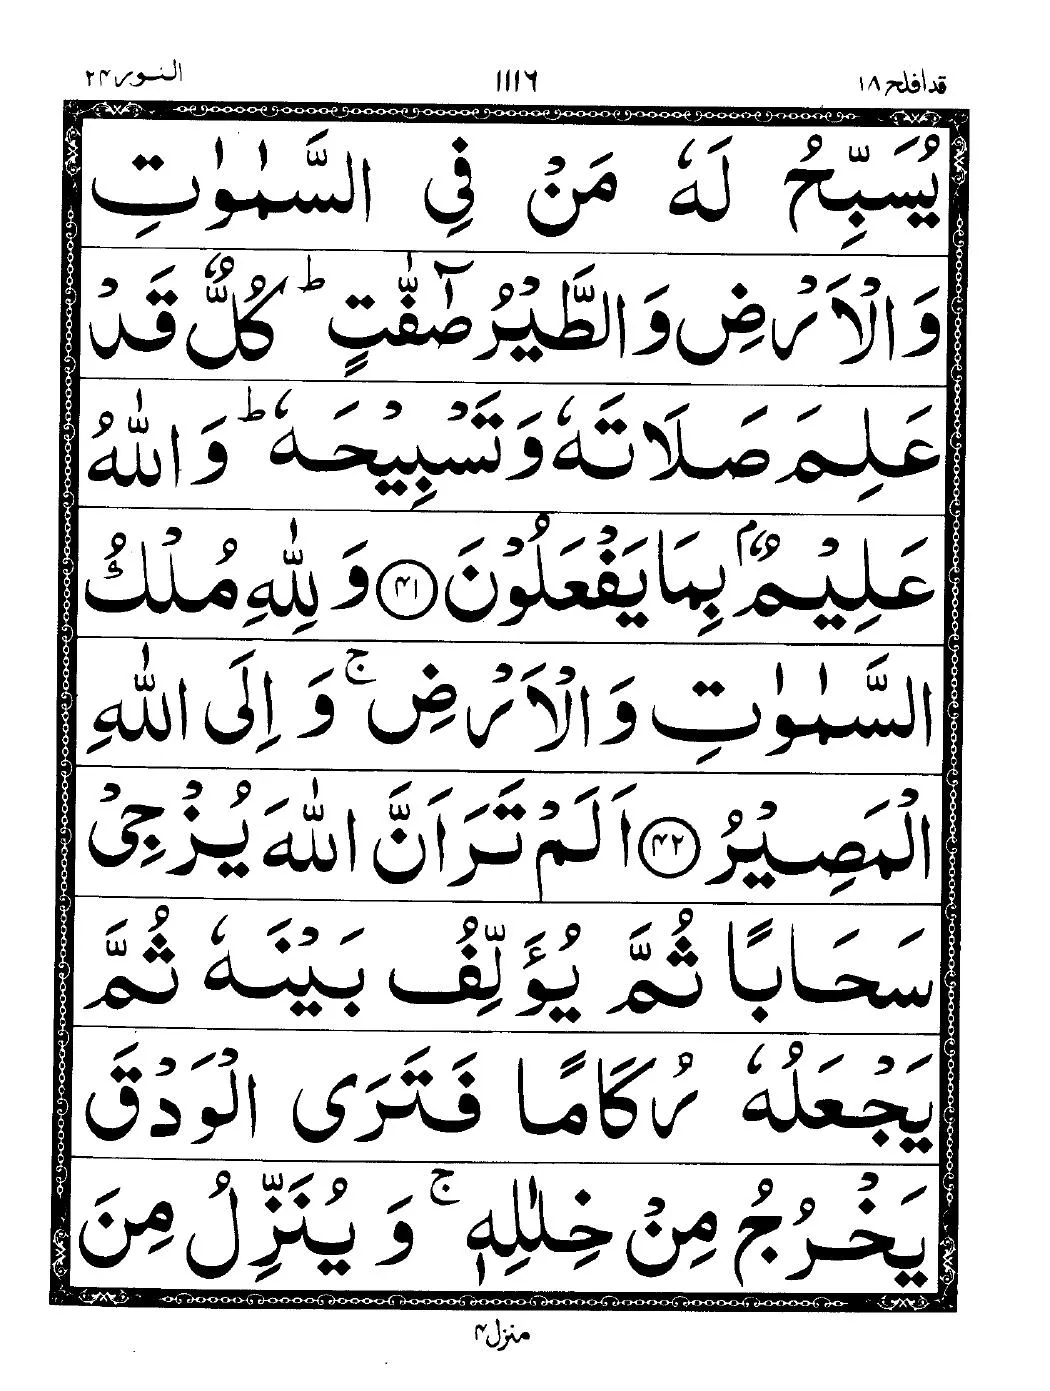 قد افلح ۱۸ ۱۱۱۶ النور ۲۴
يُسَبِّحُ لَهٗ مَنْ فِي السَّمٰوٰتِ
وَالْاَرْضِ وَالطَّيْرُ صٰٓفّٰتٍ ؕ كُلٌّ قَدْ
عَلِمَ صَلَاتَهٗ وَتَسْبِيْحَهٗ ؕ وَاللّٰهُ
عَلِيْمٌۢ بِمَا يَفْعَلُوْنَ ﴿۴۱﴾ وَلِلّٰهِ مُلْكُ
السَّمٰوٰتِ وَالْاَرْضِ ۚ وَاِلَى اللّٰهِ
الْمَصِيْرُ ﴿۴۲﴾ اَلَمْ تَرَ اَنَّ اللّٰهَ يُزْجِيْ
سَحَابًا ثُمَّ يُؤَلِّفُ بَيْنَهٗ ثُمَّ
يَجْعَلُهٗ رُكَامًا فَتَرَى الْوَدْقَ
يَخْرُجُ مِنْ خِلٰلِهٖ ۚ وَيُنَزِّلُ مِنَ
منزل ۴